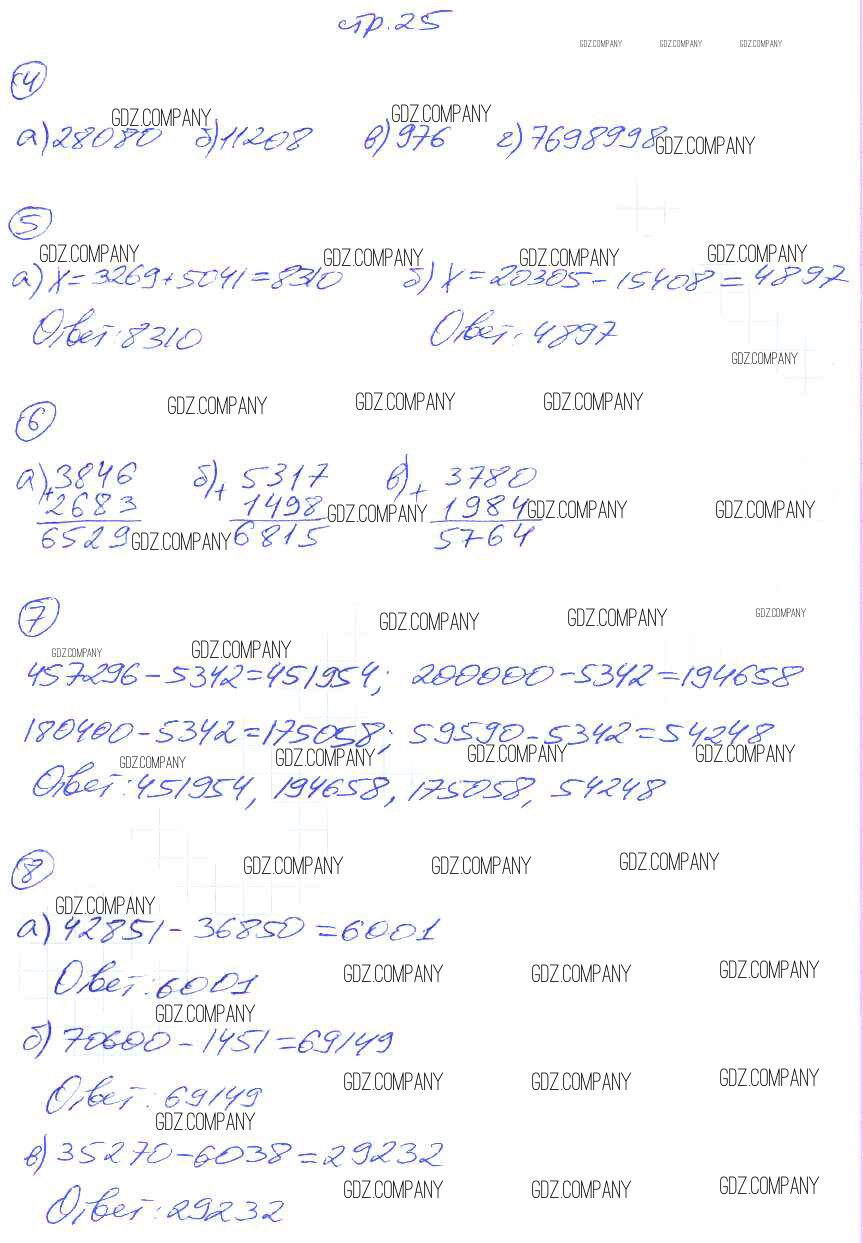 стр. 25
GDZ.COMPANY GDZ.COMPANY GDZ.COMPANY
4
GDZ.COMPANY GDZ.COMPANY
а) 28080 б) 11208 в) 976 г) 7698998 GDZ.COMPANY
5
GDZ.COMPANY GDZ.COMPANY GDZ.COMPANY GDZ.COMPANY
а) x = 3269 + 5041 = 8310 б) x = 20305 - 15408 = 4897
Ответ: 8310 Ответ: 4897
GDZ.COMPANY
GDZ.COMPANY GDZ.COMPANY GDZ.COMPANY
6
а) + 3846 б) + 5317 в) + 3780
2683 1498 GDZ.COMPANY 1984 GDZ.COMPANY GDZ.COMPANY
6529 GDZ.COMPANY 6815 5764
7
GDZ.COMPANY GDZ.COMPANY GDZ.COMPANY
GDZ.COMPANY GDZ.COMPANY
457296 - 5342 = 451954; 200000 - 5342 = 194658
180400 - 5342 = 175058; 59590 - 5342 = 54248
GDZ.COMPANY GDZ.COMPANY GDZ.COMPANY GDZ.COMPANY
Ответ: 451954, 194658, 175058, 54248
8
GDZ.COMPANY GDZ.COMPANY GDZ.COMPANY
GDZ.COMPANY
а) 42851 - 36850 = 6001
Ответ: 6001 GDZ.COMPANY GDZ.COMPANY GDZ.COMPANY
GDZ.COMPANY
б) 70600 - 1451 = 69149
Ответ: 69149 GDZ.COMPANY GDZ.COMPANY GDZ.COMPANY
GDZ.COMPANY
в) 35270 - 6038 = 29232
Ответ: 29232 GDZ.COMPANY GDZ.COMPANY GDZ.COMPANY